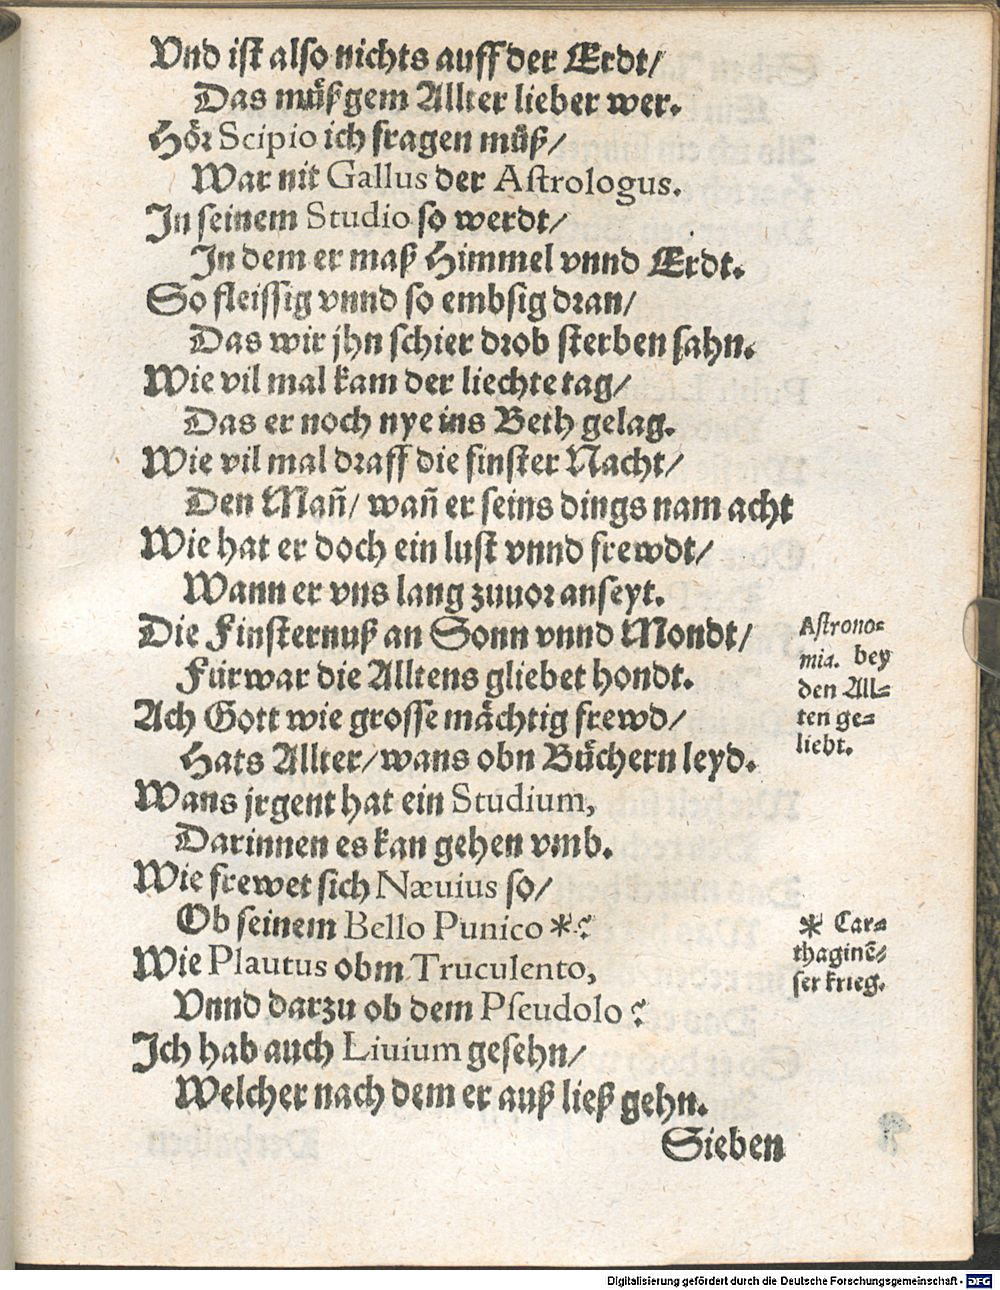 Vnd ist also nichts auff der Erdt/
Das müßgem Allter lieber wer.
Hör Scipio ich fragen můß/
War nit Gallus der Astrologus.
In seinem Studio so werdt/
In dem er maß Himmel vnnd Erdt.
So fleissig vnnd so embsig dran/
Das wir jhn schier drob sterben sahn.
Wie vil mal kam der liechte tag/
Das er noch nye ins Beth gelag.
Wie vil mal draff die finster Nacht/
Den Mañ/ wañ er seins dings nam acht
Wie hat er doch ein lust vnnd frewdt/
Wann er vns lang zuuor anseyt.
Die Finsternuß an Sonn vnnd Mondt/
Fürwar die Alltens gliebet hondt.
Astrono=
mia. bey
den All=
ten ge=
liebt.
Ach Gott wie grosse mächtig frewd/
Hats Allter/wans obn Büchern leyd.
Wans jrgent hat ein Studium,
Darinnen es kan gehen vmb.
Wie frewet sich Nævius so/
Ob seinem Bello Punico *?
* Car=
thaginē=
ser krieg.
Wie Plautus obm Truculento,
Vnnd darzu ob dem Pseudolo?
Ich hab auch Liuium gesehn/
Welcher nach dem er auß ließ gehn.
Sieben
Digitalisierung gefördert durch die Deutsche Forschungsgemeinschaft - DFG